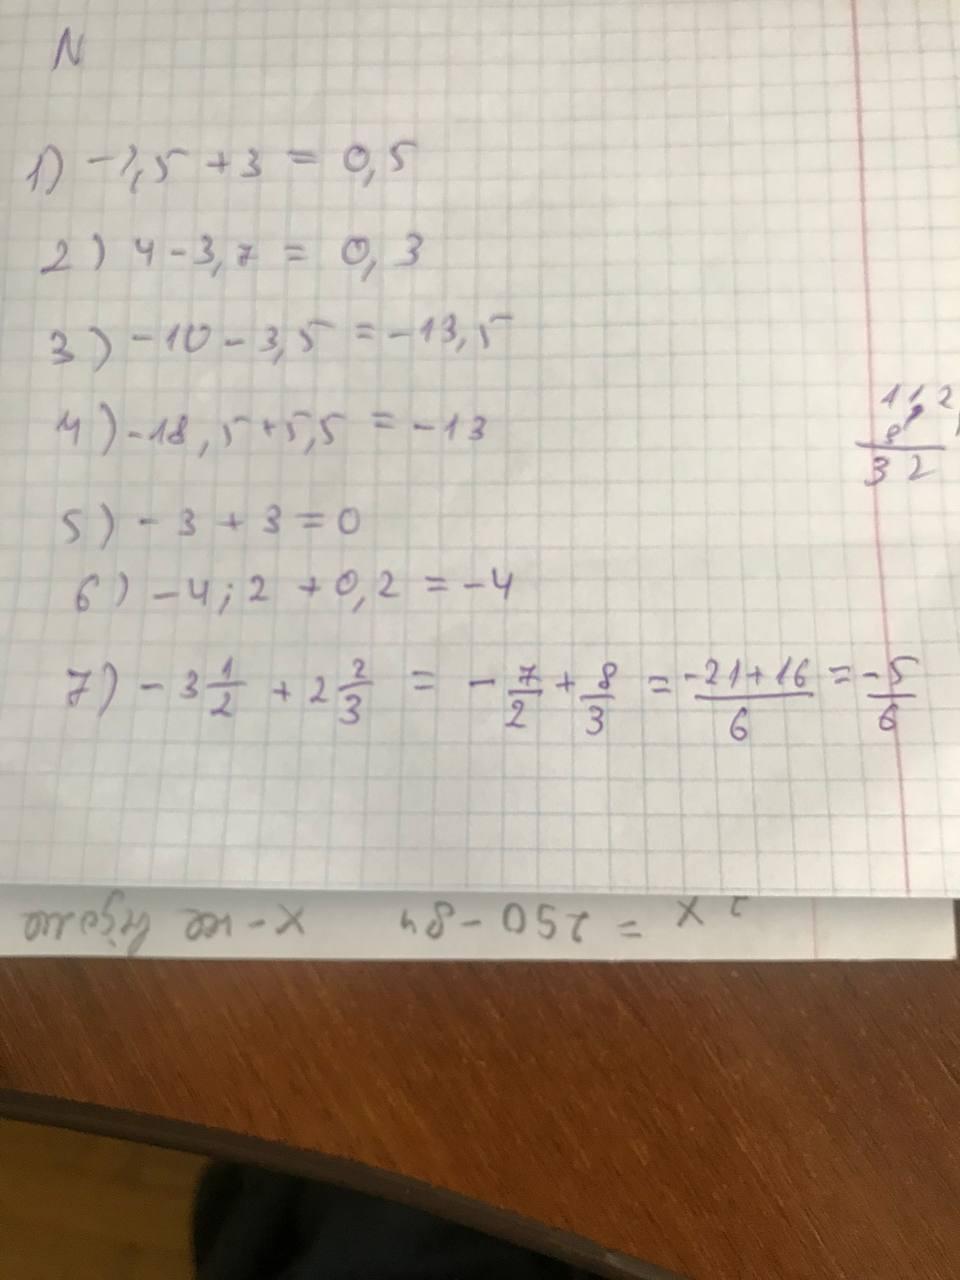 N
1) -2,5 + 3 = 0,5
2) 4 - 3,7 = 0,3
3) -10 - 3,5 = -13,5
4) -18,5 + 5,5 = -13
5) - 3 + 3 = 0
6) -4;2 + 0,2 = -4
7) - 3 1/2 + 2 2/3 = - 7/2 + 8/3 = -21+16/6 = -5/6
112
8
32
x = 250 - 84 x - не